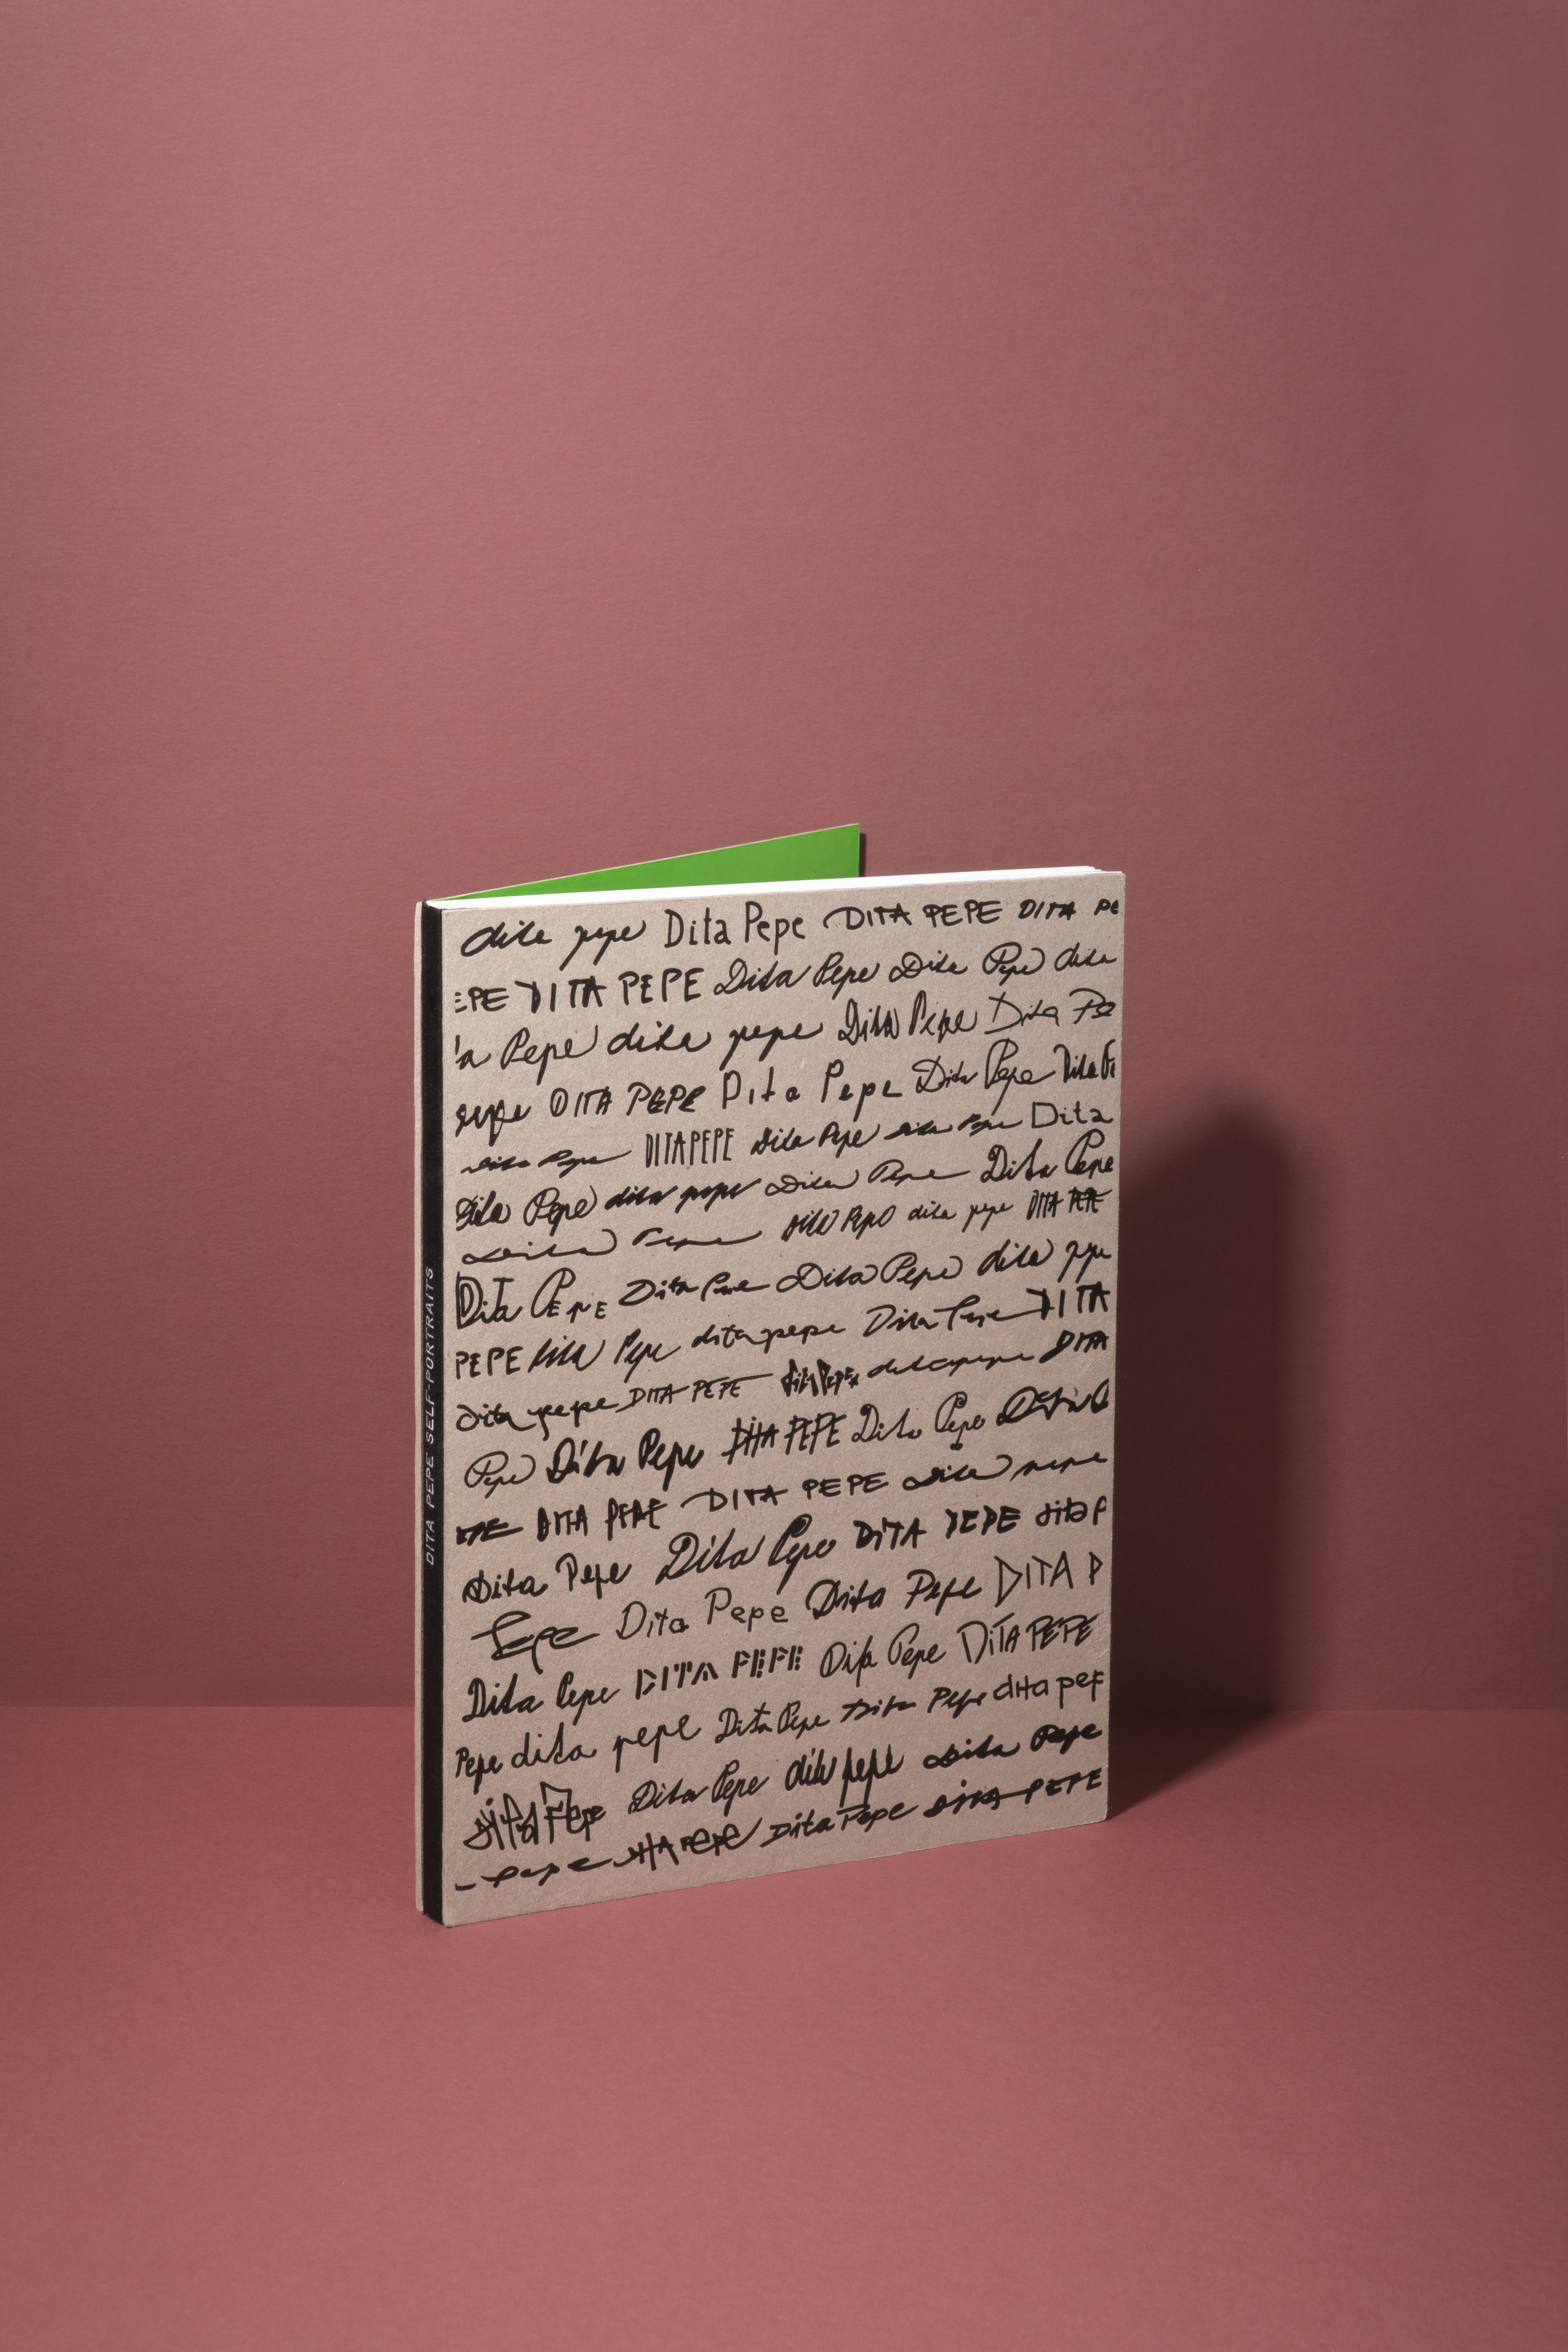 DITA PEPE SELF-PORTRAITS
dita pepe Dita Pepe DITA PEPE DITA PE
EPE DITA PEPE Dita Pepe Dita Pepe dita
a Pepe dita pepe Dita Pepe Dita Pe
pepe DITA PEPE Dita Pepe Dita Pepe Dita Pe
Dita Pepe DITA PEPE Dita Pepe dita Pepe Dita
Dita Pepe dita pepe Dita Pepe Dita Pepe
Dita Pepe dita pepo dita pepe DITA PEPE
Dita PEPE Dita Pepe Dita Pepe dita pepe
PEPE Dita Pepe dita pepe Dita Pepe DITA
Dita pepe DITA PEPE Dita Pepe dita pepe DITA
Pepe Dita Pepe DITA PEPE Dita Pepe Dita
PEPE DITA PEPE DITA PEPE Dita pepe
Dita Pepe Dita Pepe DITA PEPE dita P
Pepe Dita Pepe Dita Pepe DITA P
Dita Pepe DITA PEPE Dita Pepe DITA PEPE
Pepe dita pepe Dita Pepe Dita Pepe dita pep
dita Pepe Dita Pepe dita pepe Dita Pepe
Pepe DITA PEPE Dita Pepe DITA PEPE